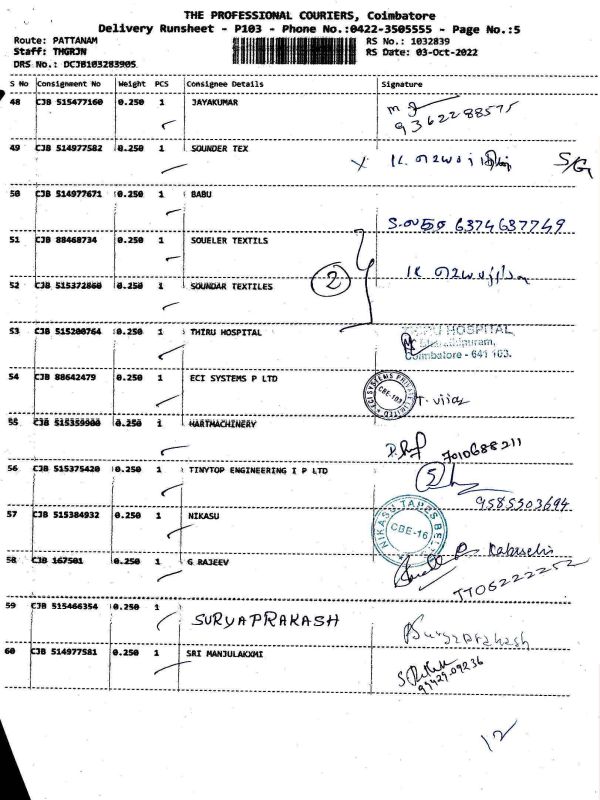 THE PROFESSIONAL COURIERS, Coimbatore
Delivery Runsheet - P103 - Phone No.:0422-3505555 - Page No.:5
Route: PATTANAM RS No.: 1032839
Staff: THGRJN RS Date: 03-Oct-2022
DRS No.: DCJB103283905
S No Consignment No Weight PCS Consignee Details Signature
48 CJB 515477160 0.250 1 JAYAKUMAR
9362288575
49 CJB 514977582 0.250 1 SOUNDER TEX
S/G
50 CJB 514977671 0.250 1 BABU
6374637749
51 CJB 88468734 0.250 1 SOUELER TEXTILS
2
52 CJB 515372860 0.250 1 SOUNDAR TEXTILES
53 CJB 515200764 0.250 1 THIRU HOSPITAL
HOSPITAL,
Coimbatore - 641 103.
54 CJB 88642479 0.250 1 ECI SYSTEMS P LTD
ECI SYSTEMS PRIVATE LIMITED CBE-103
55 CJB 515359900 0.250 1 HARTMACHINERY
7010688211
56 CJB 515375420 0.250 1 TINYTOP ENGINEERING I P LTD
5
9585503694
57 CJB 515384932 0.250 1 NIKASU
NIKASU TAPES CBE-16
58 CJB 167501 0.250 1 G RAJEEV
59 CJB 515466354 0.250 1 SURYAPRAKASH
Suryaprakash
60 CJB 514977581 0.250 1 SRI MANJULAKXMI
99429 09236
12